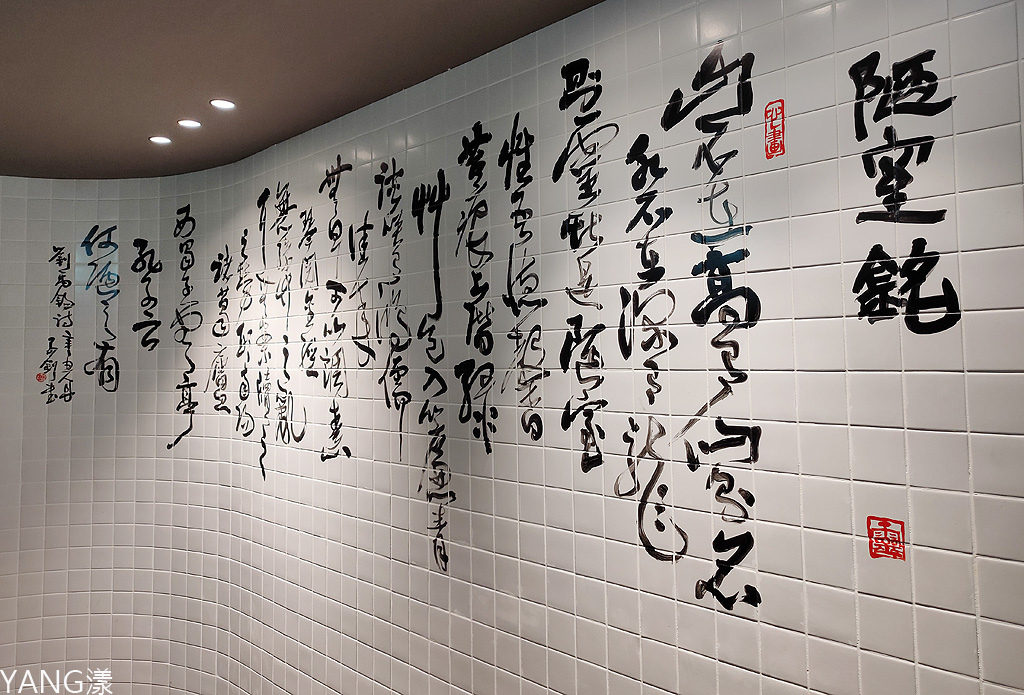 陋室銘
山不在高有仙則名
水不在深有龍
則靈斯是陋室
惟吾德馨
苔痕上階綠
艸色入簾青
談笑有鴻儒
往來
無白丁可以調素
琴閱金經
無絲竹之亂
諸葛廬
西蜀子雲亭
孔子云
何陋之有
劉禹錫詩
YANG漾